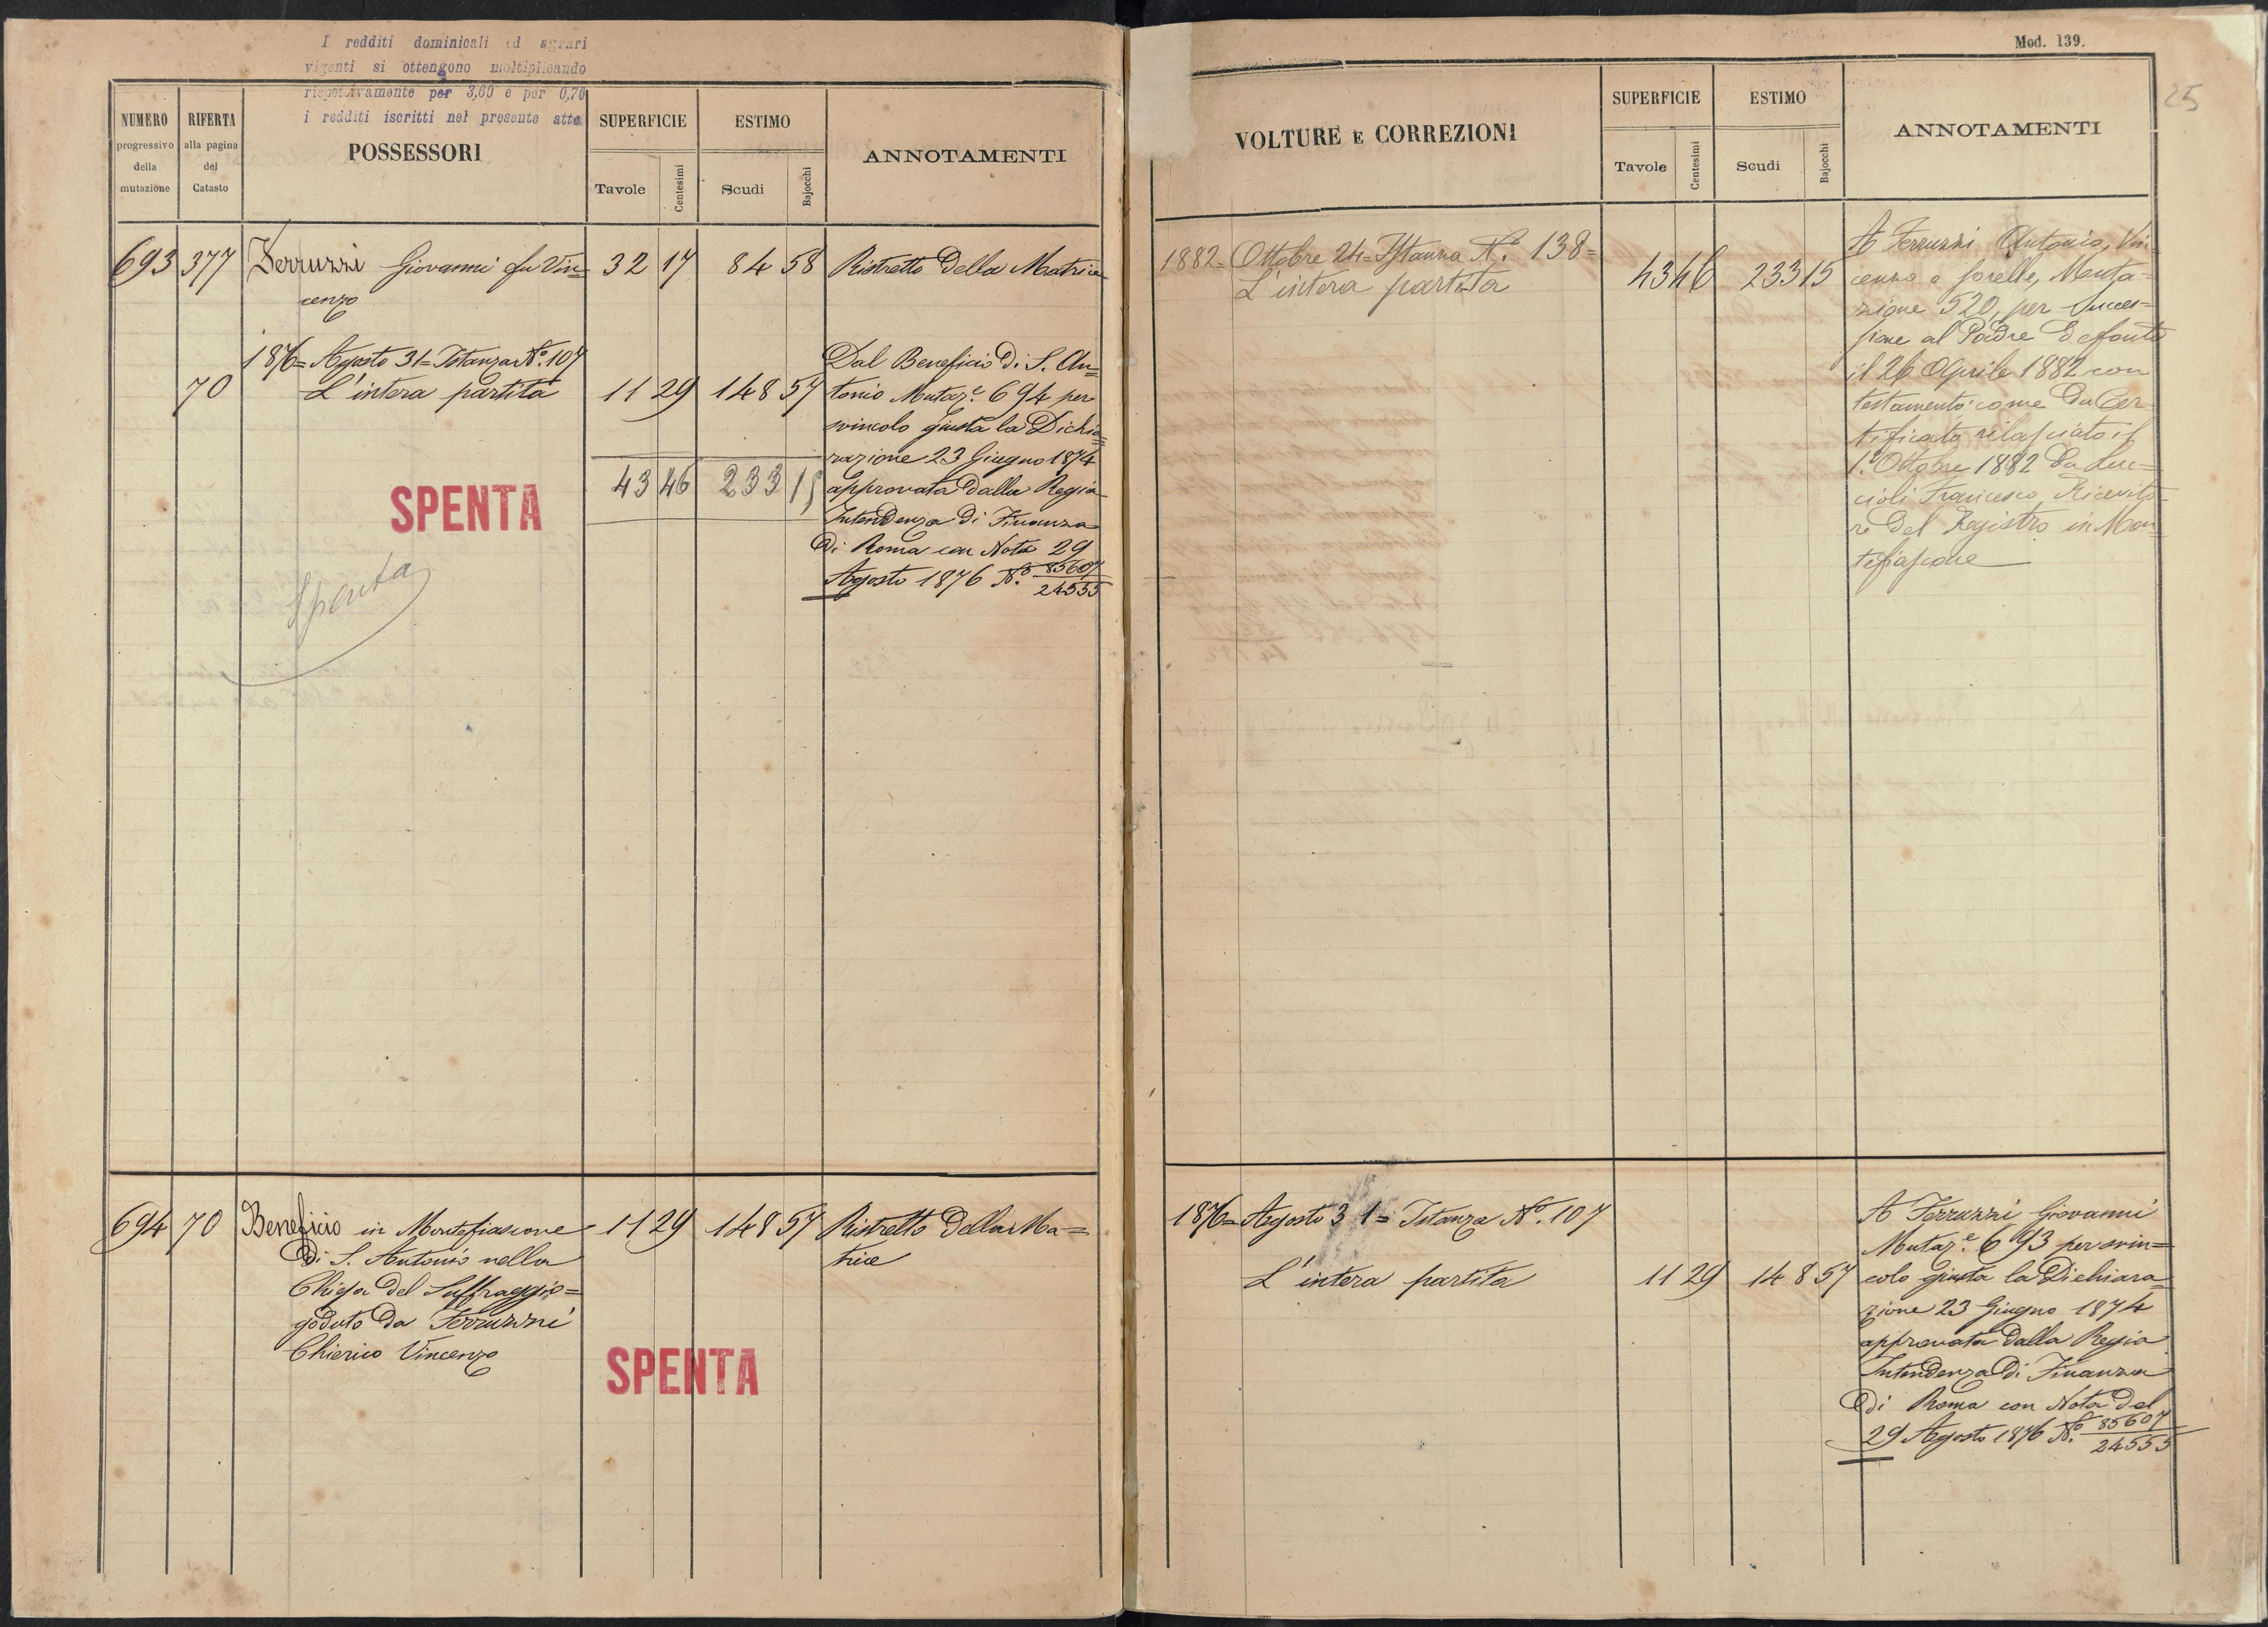 I redditi dominicali ed agrari
vigenti si ottengono moltiplicando
rispettivamente per 3,60 e per 0,70
i redditi iscritti nel presente atto
NUMERO
progressivo
della
mutazione
RIFERTA
alla pagina
del
Catasto
POSSESSORI
SUPERFICIE
Tavole
Centesimi
ESTIMO
Scudi
Bajocchi
ANNOTAMENTI
693 377 Ferruzzi Giovanni fu Vin= 32 17 84 58 Ristretto della Matrice
cenzo
1876= Agosto 31= Istanza N.º 107
70 L'intera partita 11 29 148 57
Dal Beneficio di S. An=
tonio Mutaz.e 694 per
svincolo giusta la Dichia=
razione 23 Giugno 1874
43 46 233 15
approvata dalla Regia
Intendenza di Finanza
di Roma con Nota 29
Agosto 1876 N.º 85607
24555
SPENTA
Spenta
694 70 Beneficio in Montefiascone 11 29 148 57 Ristretto della Ma=
di S. Antonio nella trice
Chiesa del Suffraggio=
goduto da Ferruzzi
Chierico Vincenzo
SPENTA
Mod. 139.
25
VOLTURE E CORREZIONI
SUPERFICIE
Tavole
Centesimi
ESTIMO
Scudi
Bajocchi
ANNOTAMENTI
1882= Ottobre 24= Istanza N.º 138=
L'intera partita 43 46 233 15
A Ferruzzi Antonio, Vin=
cenzo e sorelle, Muta=
zione 520, per succes=
sione al Padre defonto
il 26 Aprile 1882 con
testamento: come da Cer=
tificato rilasciato il
1.º Ottobre 1882 da Luc=
cioli Francesco, Ricevito=
re del Registro in Mon=
tefiascone
1876= Agosto 31= Istanza N.º 107
L'intera partita 11 29 148 57
A Ferruzzi Giovanni
Mutaz.e 693 per svin=
colo giusta la Dichiara=
zione 23 Giugno 1874
approvata dalla Regia
Intendenza di Finanza
di Roma con Nota del
29 Agosto 1876 N.º 85607
24555